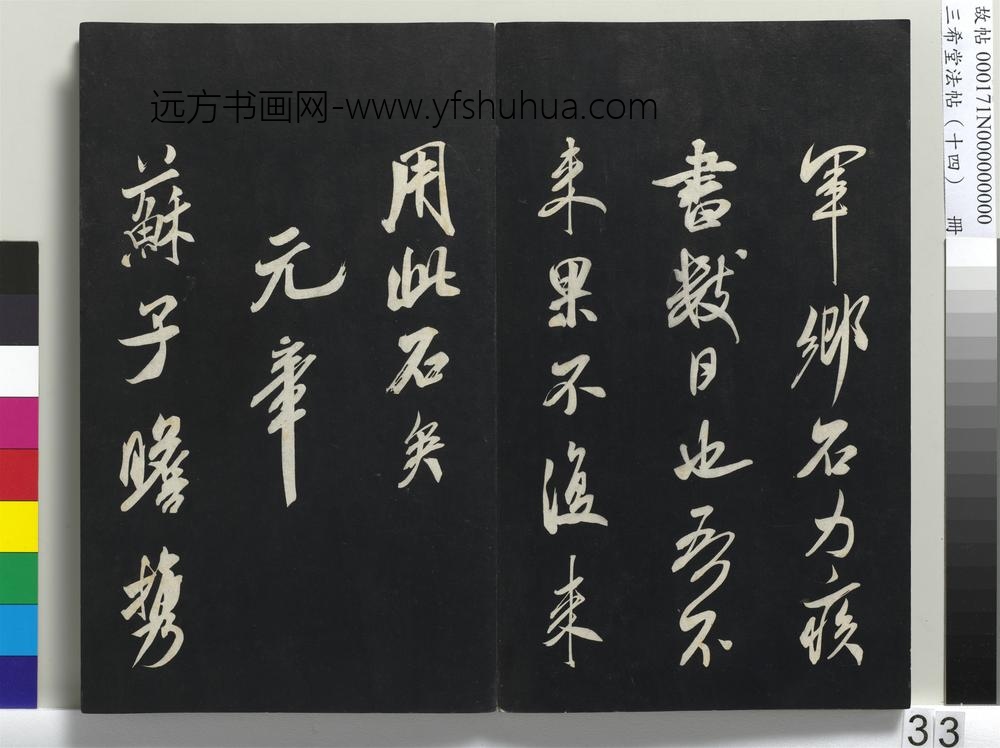 故帖 000171N000000000
三希堂法帖（十四） 册
远方书画网-www.yfshuhua.com
軍鄉石力疾
書數日也吾不
来果不復来
用此石矣
元章
蘇子瞻携
33